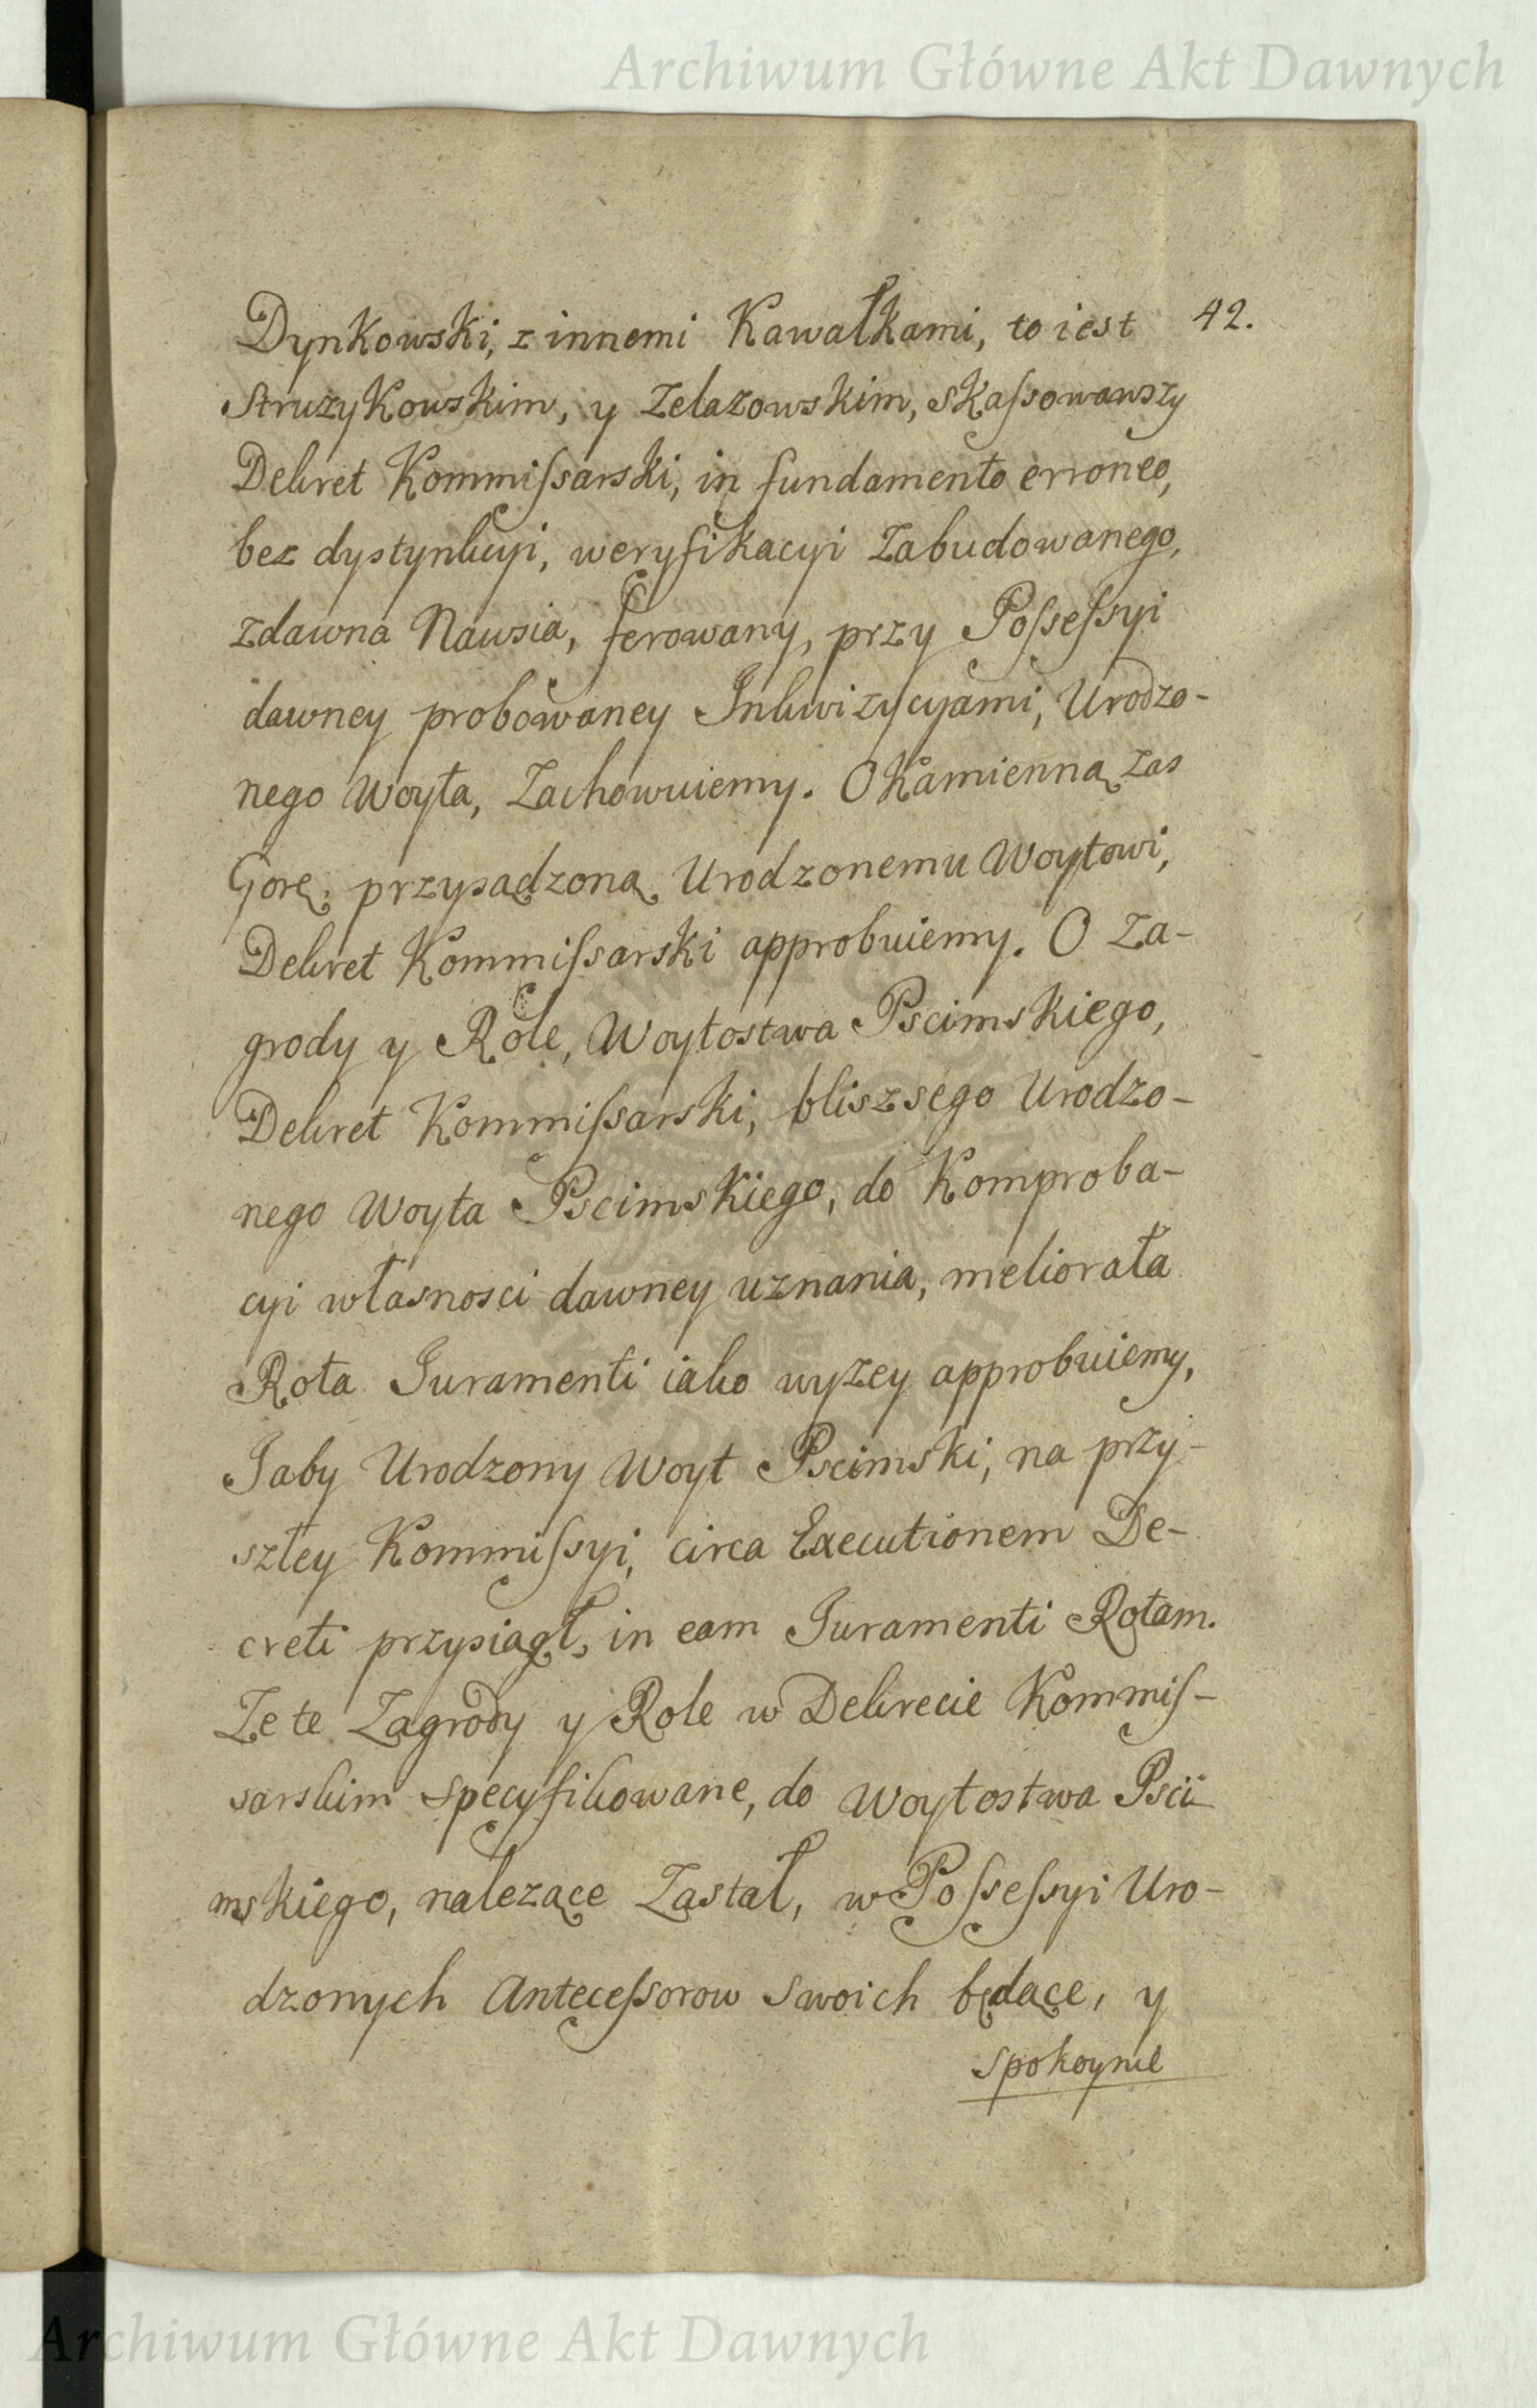 Archiwum Główne Akt Dawnych
42.
Dynkowski, z innemi Kawałkami, to iest
Struzykowskim, y Zelazowskim, skaſsowawszy
Dekret Kommiſsarski, in fundamento erroneo,
bez dystynkcyi, weryfikacyi Zabudowanego,
zdawna Nawsia, ferowany, przy Poſseſsyi
dawney probowaney Inkwizycyami, Urodzo-
nego Woyta, Zachowuiemy. O Kamienną zas
Gorę, przysądzoną Urodzonemu Woytowi,
Dekret Kommiſsarski approbuiemy. O Za-
grody y Role, Woytostwa Pscimskiego,
Dekret Kommiſsarski, bliszsego Urodzo-
nego Woyta Pscimskiego, do Komproba-
cyi własnosci dawney uznania, meliorata
Rota Juramenti iako wyzey approbuiemy,
Jaby Urodzony Woyt Pscimski, na przy-
szłey Kommiſsyi, circa Executionem De-
creti przysiągł, in eam Juramenti Rotam.
Ze te Zagrody y Role w Dekrecie Kommiſ-
sarskim specyfikowane, do Woytostwa Psci-
mskiego, nalezące Zastał, w Poſseſsyi Uro-
dzonych Anteceſsorow swoich będące, y
spokoynie
Archiwum Główne Akt Dawnych